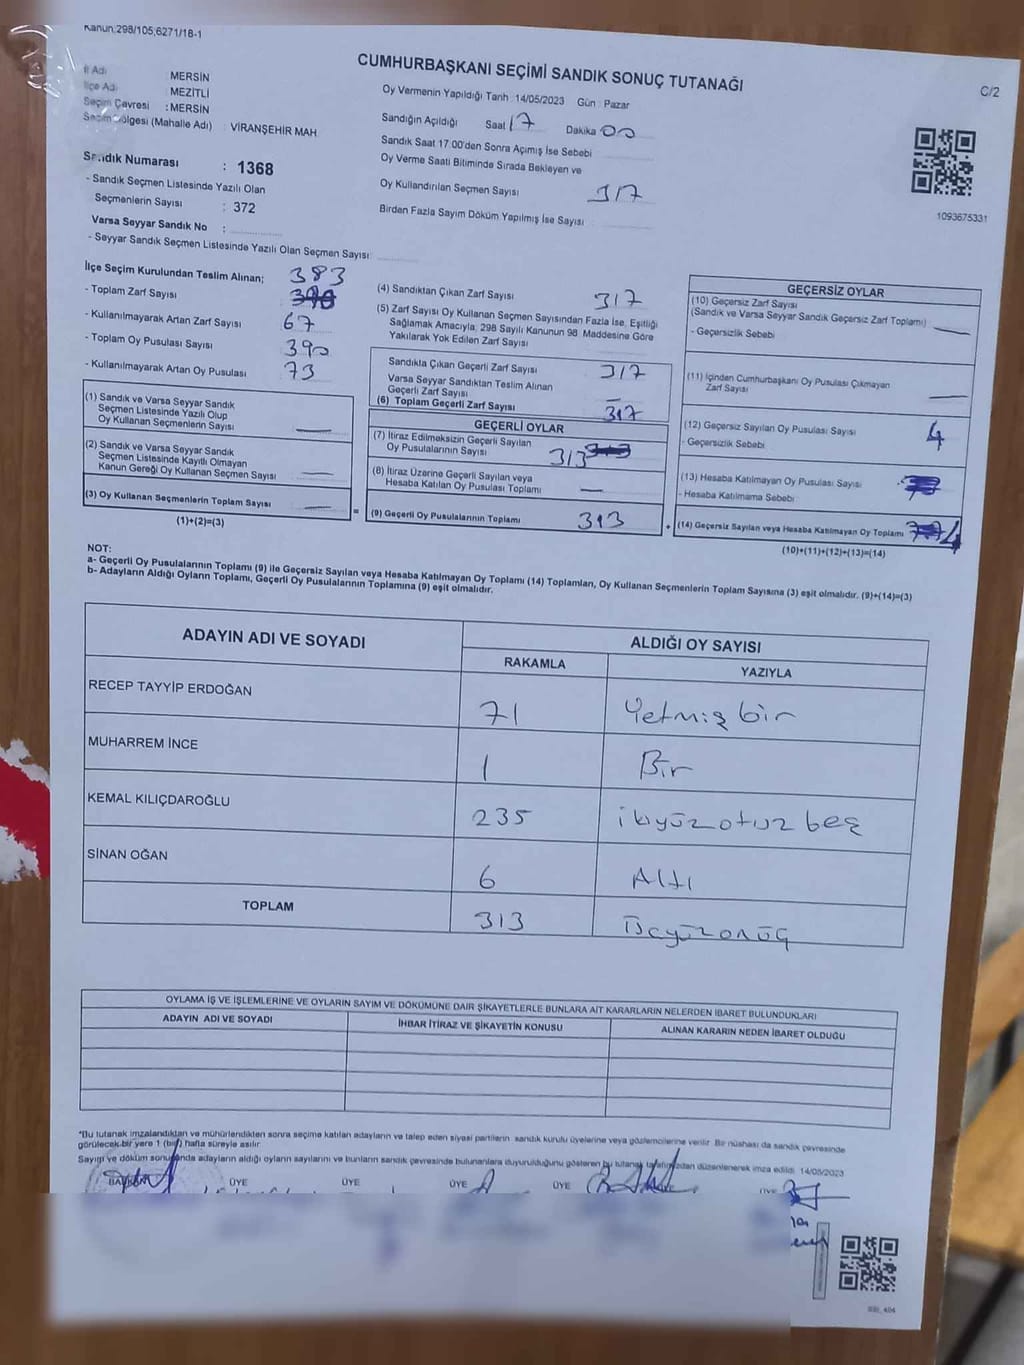 Kanun;298/105;6271/18-1
CUMHURBAŞKANI SEÇİMİ SANDIK SONUÇ TUTANAĞI
C/2
İl Adı : MERSİN
İlçe Adı : MEZİTLİ
Seçim Çevresi : MERSİN
Seçim Bölgesi (Mahalle Adı) : VİRANŞEHİR MAH.
Sandık Numarası : 1368
- Sandık Seçmen Listesinde Yazılı Olan
Seçmenlerin Sayısı : 372
Varsa Seyyar Sandık No :
- Seyyar Sandık Seçmen Listesinde Yazılı Olan Seçmen Sayısı:
Oy Vermenin Yapıldığı Tarih : 14/05/2023 Gün : Pazar
Sandığın Açıldığı Saat 17 Dakika 00
Sandık Saat 17.00'den Sonra Açımış İse Sebebi
Oy Verme Saati Bitiminde Sırada Bekleyen ve
Oy Kullandırılan Seçmen Sayısı 317
Birden Fazla Sayım Döküm Yapılmış İse Sayısı :
1093675331
İlçe Seçim Kurulundan Teslim Alınan; 383
- Toplam Zarf Sayısı : 390
- Kullanılmayarak Artan Zarf Sayısı : 67
- Toplam Oy Pusulası Sayısı : 390
- Kullanılmayarak Artan Oy Pusulası : 73
(1) Sandık ve Varsa Seyyar Sandık
Seçmen Listesinde Yazılı Olup
Oy Kullanan Seçmenlerin Sayısı —
(2) Sandık ve Varsa Seyyar Sandık
Seçmen Listesinde Kayıtlı Olmayan
Kanun Gereği Oy Kullanan Seçmen Sayısı —
(3) Oy Kullanan Seçmenlerin Toplam Sayısı —
(1)+(2)=(3)
=
(4) Sandıktan Çıkan Zarf Sayısı 317
(5) Zarf Sayısı Oy Kullanan Seçmen Sayısından Fazla İse, Eşitliği
Sağlamak Amacıyla, 298 Sayılı Kanunun 98. Maddesine Göre
Yakılarak Yok Edilen Zarf Sayısı
Sandıkta Çıkan Geçerli Zarf Sayısı 317
Varsa Seyyar Sandıktan Teslim Alınan
Geçerli Zarf Sayısı —
(6) Toplam Geçerli Zarf Sayısı 317
GEÇERLİ OYLAR
(7) İtiraz Edilmeksizin Geçerli Sayılan
Oy Pusulalarının Sayısı 313
(8) İtiraz Üzerine Geçerli Sayılan veya
Hesaba Katılan Oy Pusulası Toplamı —
(9) Geçerli Oy Pusulalarının Toplamı 313
+
GEÇERSİZ OYLAR
(10) Geçersiz Zarf Sayısı
(Sandık ve Varsa Seyyar Sandık Geçersiz Zarf Toplamı) —
- Geçersizlik Sebebi
(11) İçinden Cumhurbaşkanı Oy Pusulası Çıkmayan
Zarf Sayısı —
(12) Geçersiz Sayılan Oy Pusulası Sayısı 4
- Geçersizlik Sebebi
(13) Hesaba Katılmayan Oy Pusulası Sayısı
- Hesaba Katılmama Sebebi
(14) Geçersiz Sayılan veya Hesaba Katılmayan Oy Toplamı 4
(10)+(11)+(12)+(13)=(14)
NOT:
a- Geçerli Oy Pusulalarının Toplamı (9) ile Geçersiz Sayılan veya Hesaba Katılmayan Oy Toplamı (14) Toplamları, Oy Kullanan Seçmenlerin Toplam Sayısına (3) eşit olmalıdır. (9)+(14)=(3)
b- Adayların Aldığı Oyların Toplamı, Geçerli Oy Pusulalarının Toplamına (9) eşit olmalıdır.
ADAYIN ADI VE SOYADI ALDIĞI OY SAYISI
RAKAMLA YAZIYLA
RECEP TAYYİP ERDOĞAN 71 Yetmiş bir
MUHARREM İNCE 1 Bir
KEMAL KILIÇDAROĞLU 235 ikiyüz otuz beş
SİNAN OĞAN 6 Altı
TOPLAM 313 Üçyüzonüç
OYLAMA İŞ VE İŞLEMLERİNE VE OYLARIN SAYIM VE DÖKÜMÜNE DAİR ŞİKAYETLERLE BUNLARA AİT KARARLARIN NELERDEN İBARET BULUNDUKLARI
ADAYIN ADI VE SOYADI İHBAR İTİRAZ VE ŞİKAYETİN KONUSU ALINAN KARARIN NEDEN İBARET OLDUĞU
*Bu tutanak imzalandıktan ve mühürlendikten sonra seçime katılan adayların ve talep eden siyasi partilerin sandık kurulu üyelerine veya gözlemcilerine verilir. Bir nüshası da sandık çevresinde
görülecek bir yere 1 (bir) hafta süreyle asılır.
Sayım ve döküm sonucunda adayların aldığı oyların sayılarını ve bunların sandık çevresinde bulunanlara duyurulduğunu gösteren bu tutanak tarafımızdan düzenlenerek imza edildi. 14/05/2023
BAŞKAN ÜYE ÜYE ÜYE ÜYE ÜYE